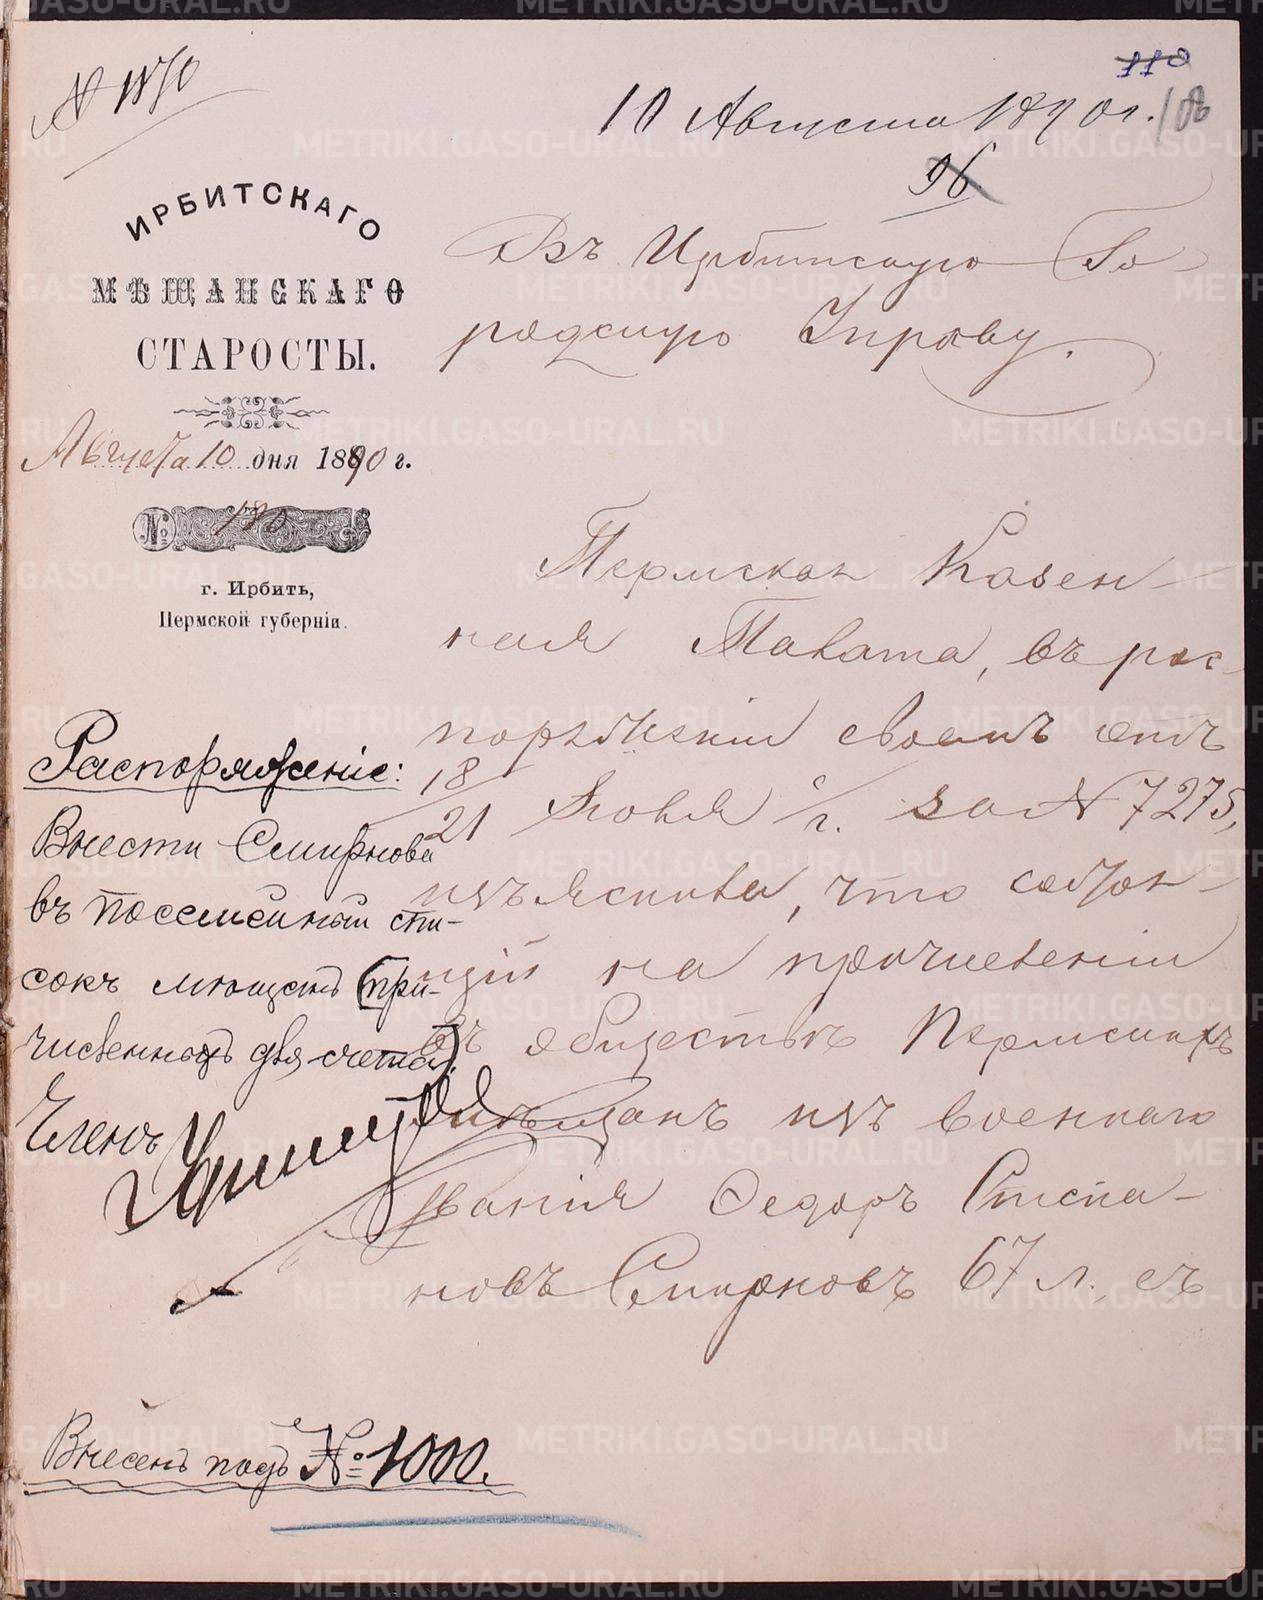 110
№ 1870
10 Августа 1890 г.
108
96
ИРБИТСКАГО
МѢЩАНСКАГО
СТАРОСТЫ.
Августа 10 дня 1890 г.
№
г. Ирбить,
Пермской губерніи.
Въ Ирбитскую Го-
родскую Управу.
Пермская Казен-
ная Палата, въ рас-
поряженіи своемъ отъ
18/21 Іюля с/г. за № 7275,
изъяснила, что
на причисленіи
въ общество Пермскихъ
мѣщанъ изъ военнаго
званія Федоръ Степа-
новъ Смирновъ 67 л. съ
Распоряженіе:
Внести Смирнова
въ посемейный спи-
сокъ мѣщанъ (при-
численныхъ для счета).
Членъ
Внесенъ подъ № 1000.
METRIKI.GASO-URAL.RU